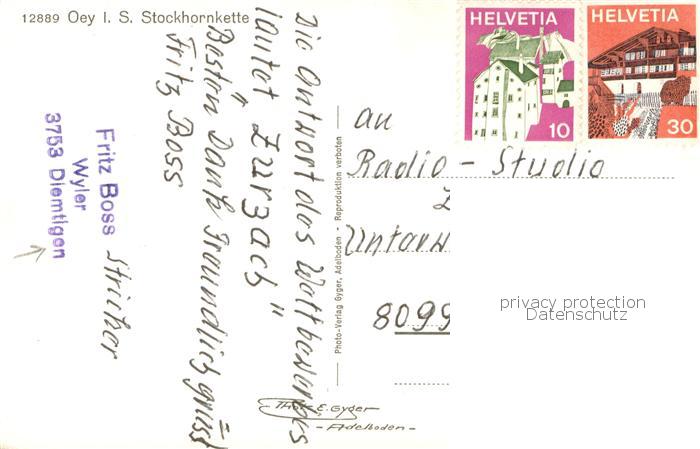 12889 Oey I. S. Stockhornkette
HELVETIA
10
HELVETIA
30
Die Antwort des Wettbewerbes
lautet "Zurzach"
Besten Dank Freundlich grüsst
Fritz Boss
Fritz Boss
Wyler
3753 Diemtigen
Photo-Verlag Gyger, Adelboden - Reproduktion verboten
an
Radio-Studio
Z
Unterw
8099
privacy protection
Datenschutz
E. Gyger
- Adelboden -